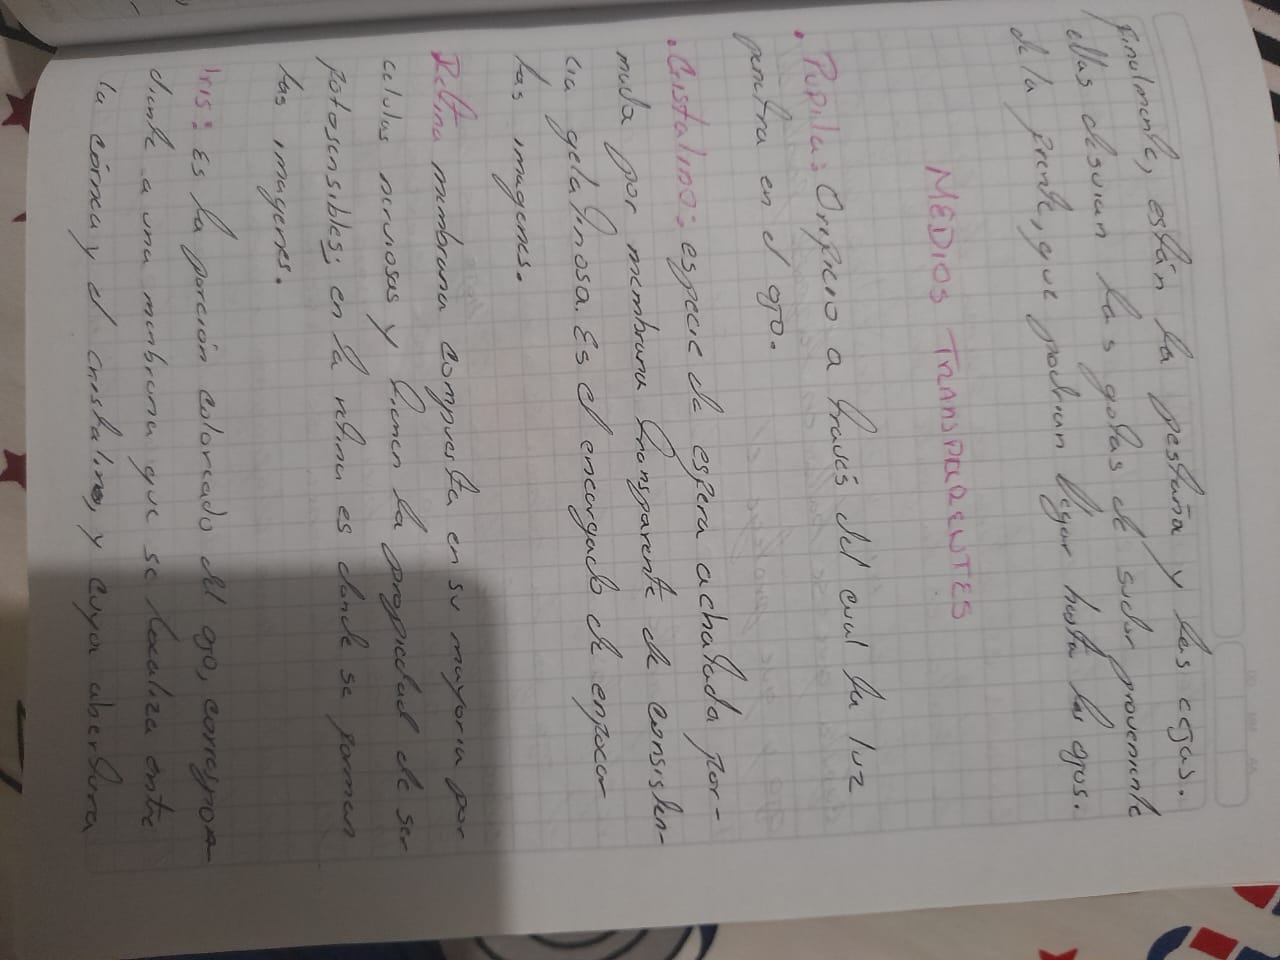 finalmente, están la pestaña y las cejas.
ellas desvian las gotas de sudor proveniente
de la frente, que podrian llegar hasta los ojos.
MEDIOS TRANSPARENTES
• Pupila: Orificio a través del cual la luz
penetra en el ojo.
• Cristalino: especie de esfera achatada for-
mada por membrana transparente de consisten-
cia gelatinosa. Es el encargado de enfocar
las imagenes.
Retina membrana compuesta en su mayoria por
celulas nerviosas y tienen la propiedad de ser
fotosensibles; en la retina es donde se forman
las imagenes.
Iris: Es la porción coloreado del ojo, correspon
diente a una membrana que se localiza entre
la córnea y el cristalino, y cuya abertura